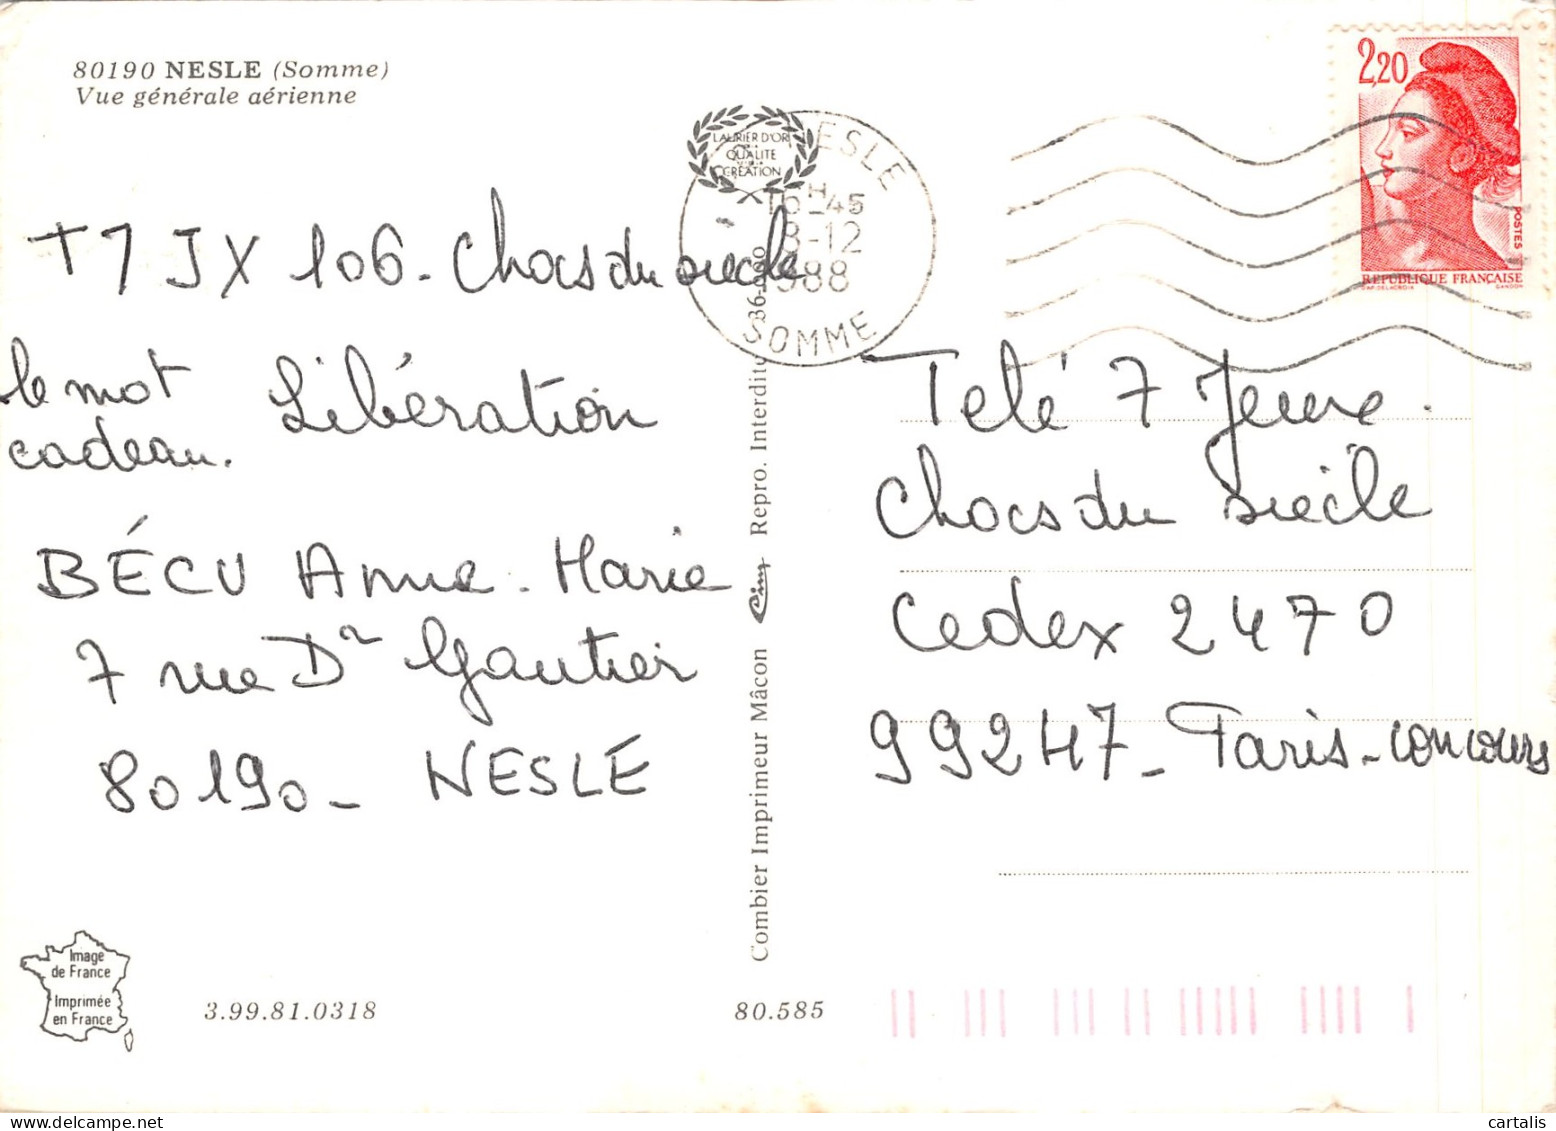 80190 NESLE (Somme)
Vue générale aérienne
LAURIER D'OR
QUALITE
CREATION
NESLE
16H-45
8-12
1988
SOMME
2,20
POSTES
REPUBLIQUE FRANÇAISE
D'AP. DELACROIX GANDON
T7JX 106 - Chocs du siècle
le mot
cadeau. Libération
BÉCU Anne-Marie
7 rue Dr Gautier
80190 - NESLE
Telé 7 Jeux.
Chocs du siècle
Cedex 2470
99247 - Paris-concours
Combier Imprimeur Mâcon Cim Repro. Interdite
Image
de France
Imprimée
en France
3.99.81.0318
80.585
cartalis